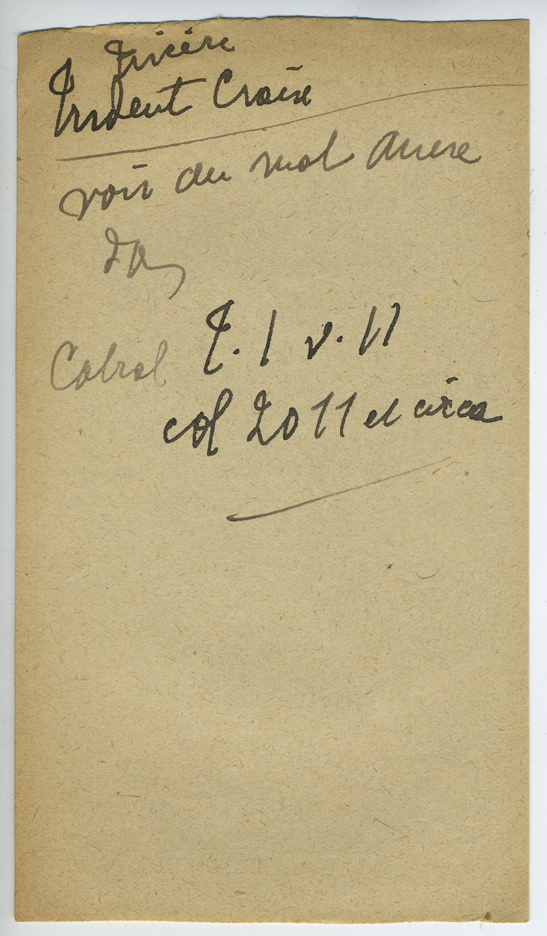 Trident Croix
voir au mot Ancre
ds
Cabrol T. 1 v. 11
col 2011 et circa